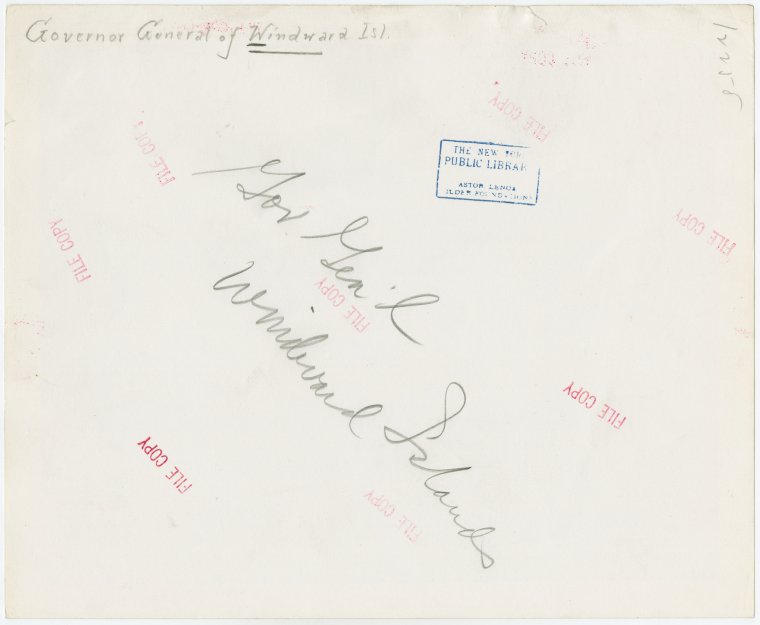 Governor General of Windward Isl.
FILE COPY
FILE COPY
THE NEW
PUBLIC LIBRAR
ASTOR LENOX
TILDEN FOUNDATIONS
Gov Gen'l
Windward Islands
FILE COPY
FILE COPY
FILE COPY
FILE COPY
FILE COPY
FILE COPY